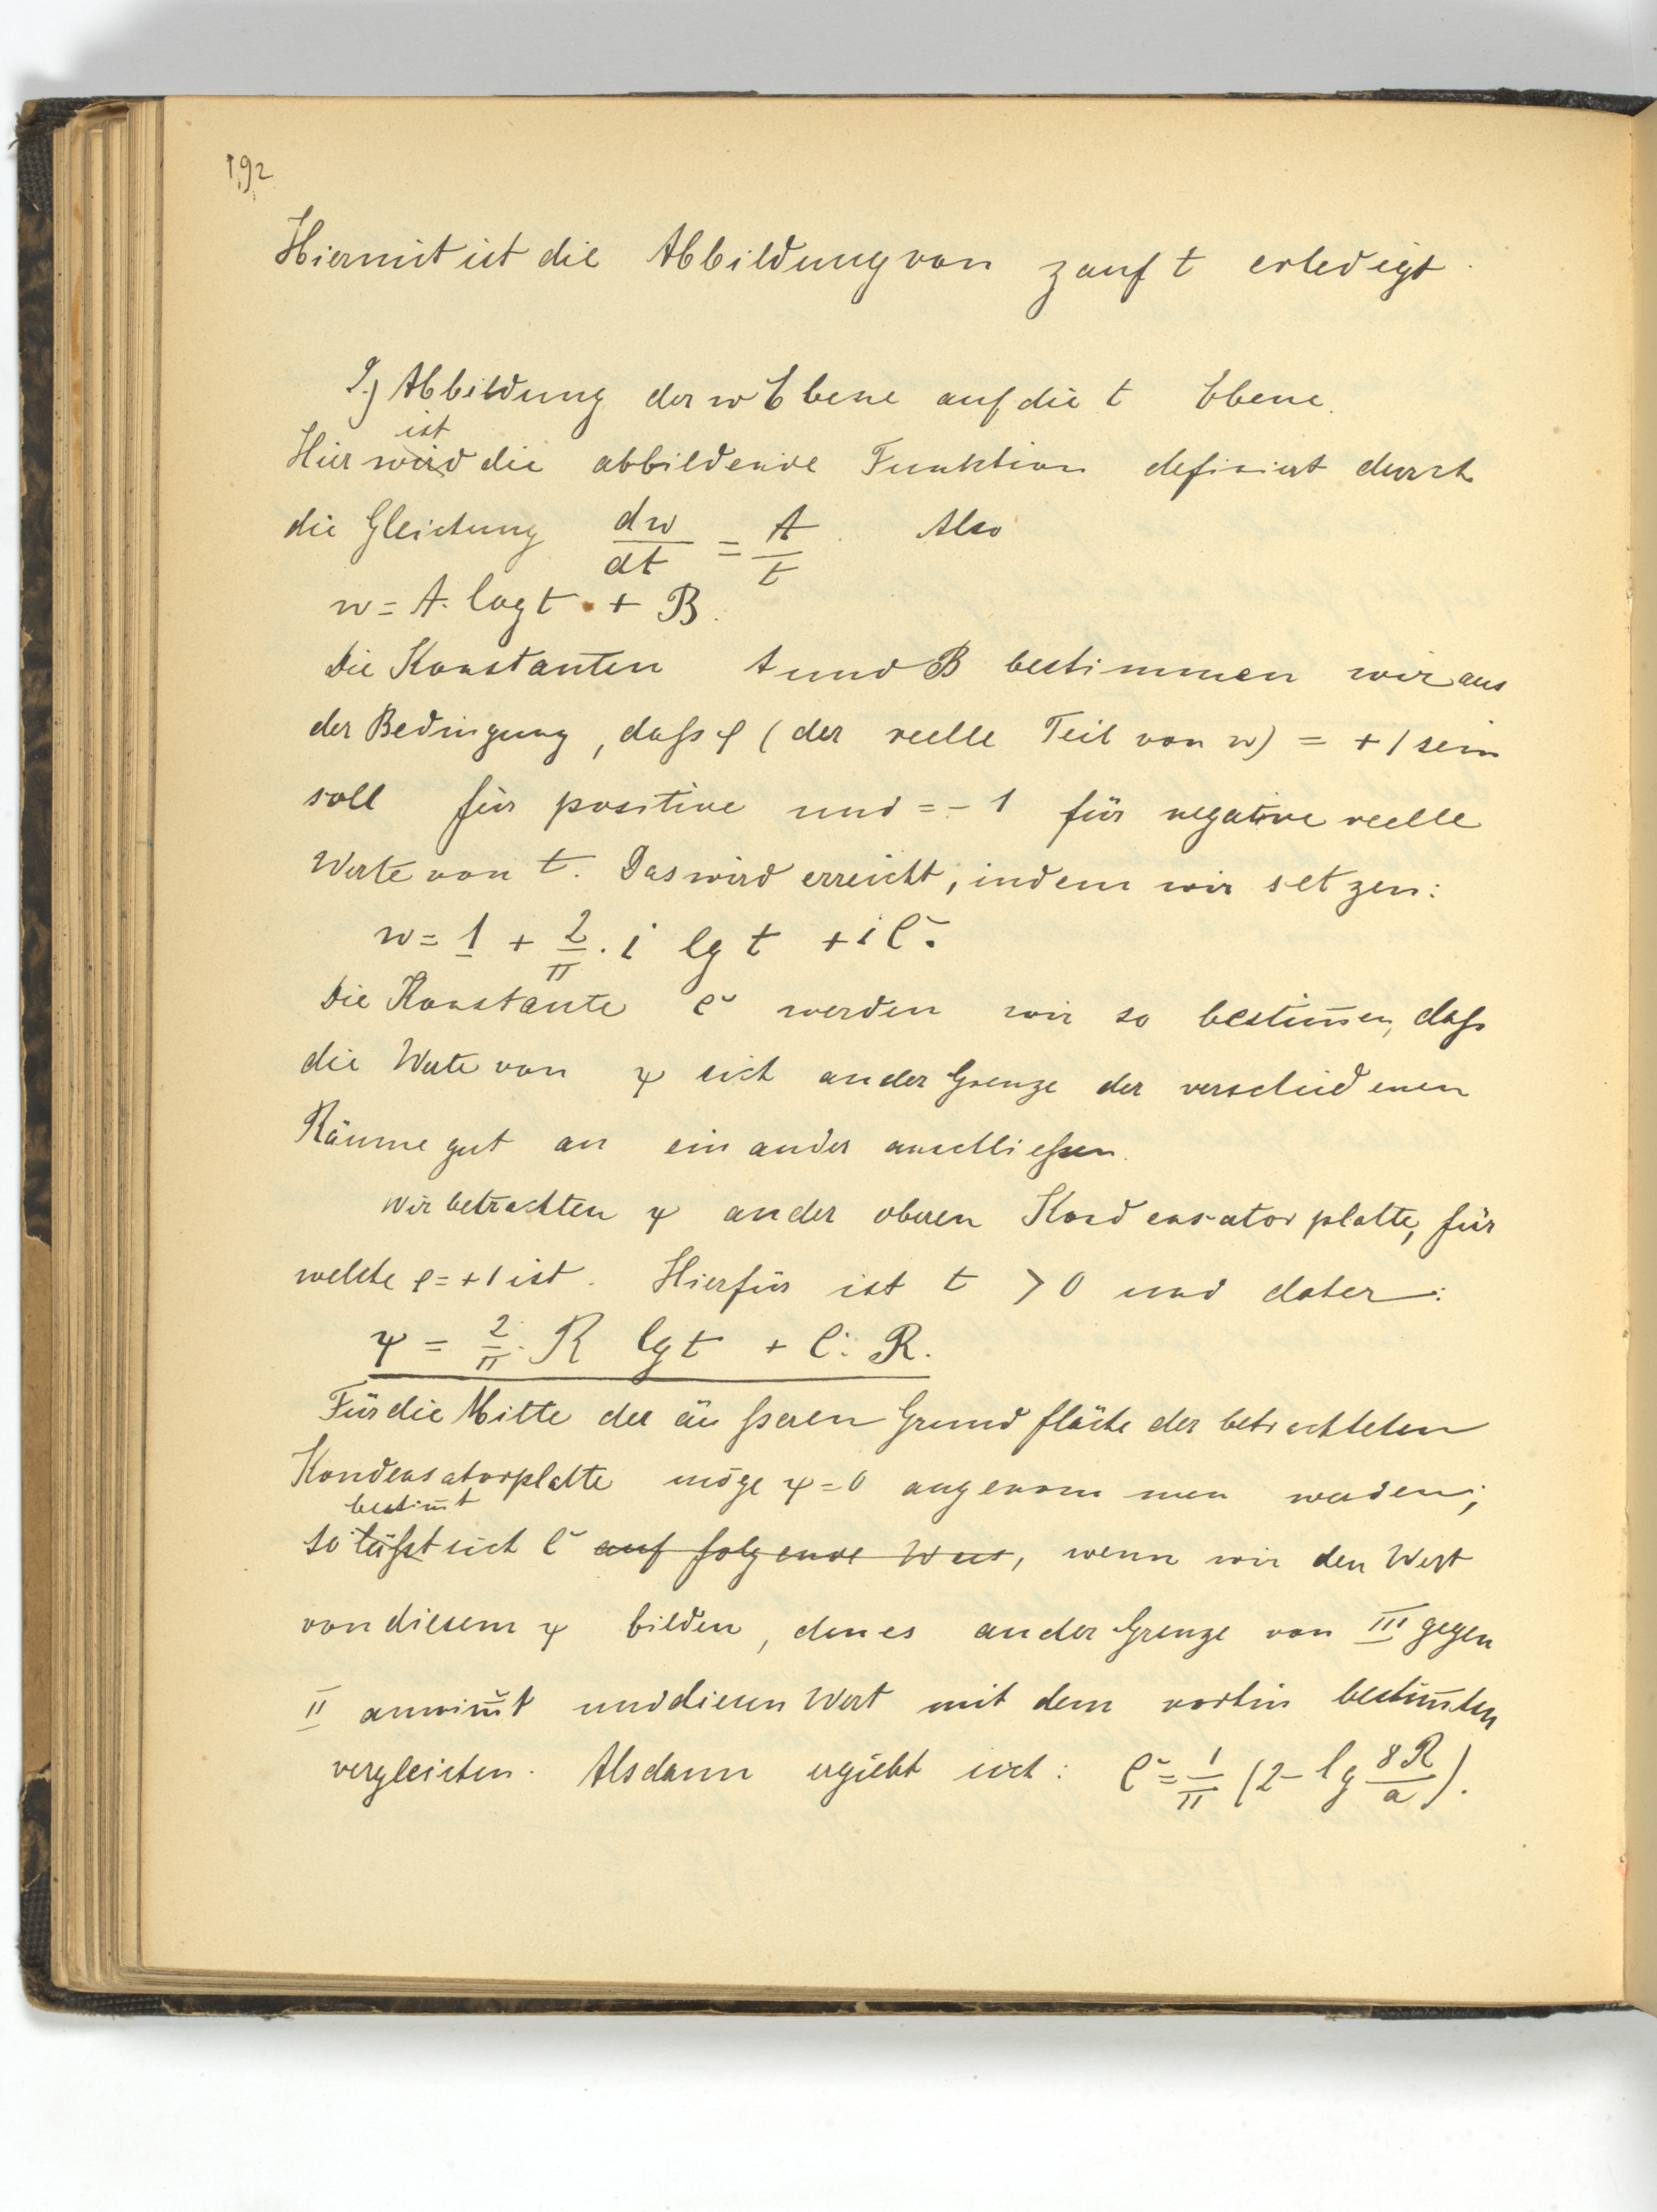 192
Hiermit ist die Abbildung von z auf t erledigt.
2.) Abbildung der w Ebene auf die t Ebene.
ist
Hier wird die abbildende Funktion definiert durch
die Gleichung dw/dt = A/t. Also
w = A. log t + B.
Die Konstanten A und B bestimmen wir aus
der Bedingung, daſs φ (der reelle Teil von w) = +1 sein
soll für positive und = -1 für negative reelle
Werte von t. Das wird erreicht, indem wir setzen:
w = 1 + 2/π . i lg t + i C̆.
Die Konstante C̆ werden wir so bestim̅en, daſs
die Werte von ψ sich an der Grenze der verschiedenen
Räume gut an einander anschlieſsen.
Wir betrachten ψ an der oberen Kondensatorplatte, für
welche φ = +1 ist. Hierfür ist t > 0 und daher:
ψ = 2/π . R lg t + C̆. R.
Für die Mitte der äuſseren Grundfläche der betrachteten
Kondensatorplatte möge ψ = 0 angenommen werden;
bestim̅t
so läſst sich C̆ auf folgende Weis, wenn wir den Wert
von diesem ψ bilden, den es an der Grenze von III gegen
II annim̅t und diesen Wert mit dem vorhin bestim̅ten
vergleichen. Alsdann ergiebt sich: C̆ = 1/π (2 - lg 8R/a).